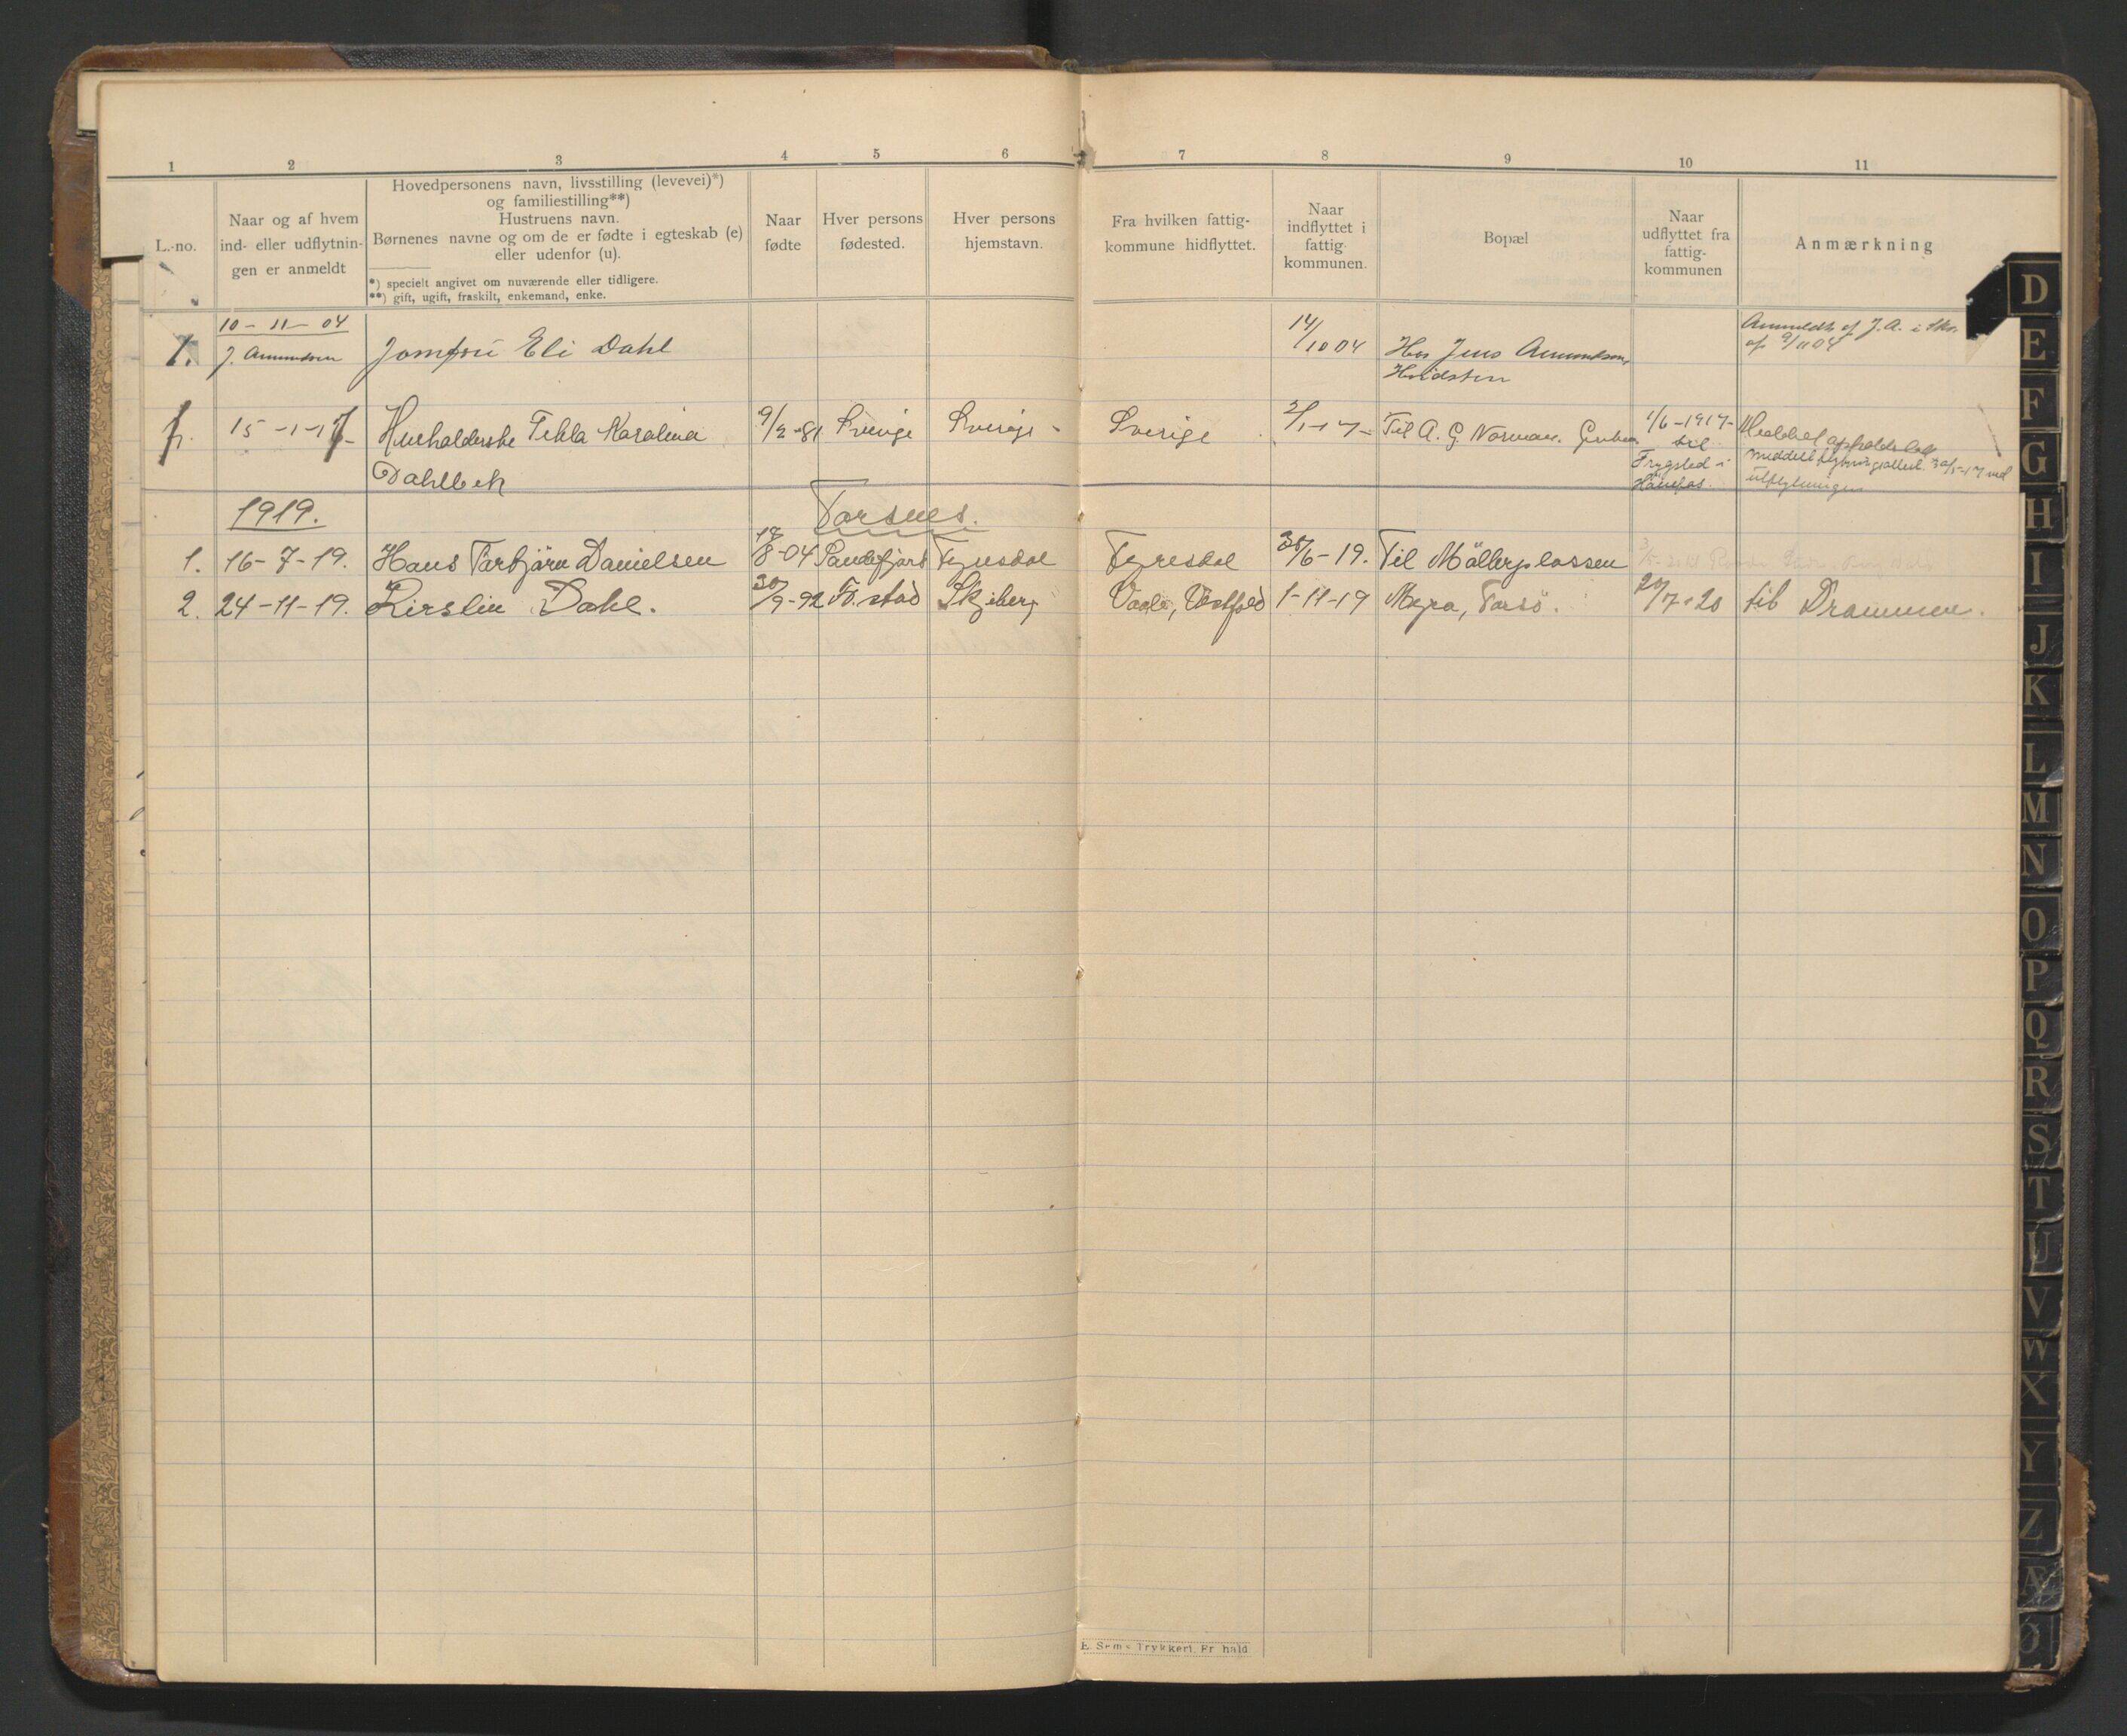 1 2 3 4 5 6 7 8 9 10 11
L.-no.
Naar og af hvem
ind- eller udflytnin-
gen er anmeldt
Hovedpersonens navn, livsstilling (levevei)*)
og familiestilling**)
Hustruens navn.
Børnenes navne og om de er fødte i egteskab (e)
eller udenfor (u).
*) specielt angivet om nuværende eller tidligere.
**) gift, ugift, fraskilt, enkemand, enke.
Naar
fødte
Hver persons
fødested.
Hver persons
hjemstavn.
Fra hvilken fattig-
kommune hidflyttet.
Naar
indflyttet i
fattig-
kommunen.
Bopæl
Naar
udflyttet fra
fattig-
kommunen
Anmærkning
1. 10-11-04 Jomfru Eli Dahl 14/10 04 Hos Jens Amundsen, Anmeldt af J. A. i Skr.
J. Amundsen Hvidsten af 9/11 04
1. 15-1-17 Husholderske Tekla Karolina 9/2-81 Sverige Sverige Sverige 2/1-17 Til A. G. Norman. 1/6-1917-
Dahlbek
til
Frygsted i
Hönefos.
Meddelt opholdsbok
meddelt flytningsattest 30/5-17 ved
utflytningen
1919. Torsnes.
1. 16-7-19. Hans Torbjörn Danielsen 17/8-04 Sandefjord Fyresdal Fyresdal 30/6-19. Til Möllerplassen
2. 24-11-19. Kirstin Dahl. 30/9-92 Fr.stad Skjeberg Vaale, Vestfold 1-11-19 Myra, Torsö. 20/7-20 til Drammen.
E. Sems Trykkeri, Fr.hald
D
E
F
G
H
I
J
K
L
M
N
O
P
Q
R
S
T
U
V
W
X
Y
Z
Æ
Ø